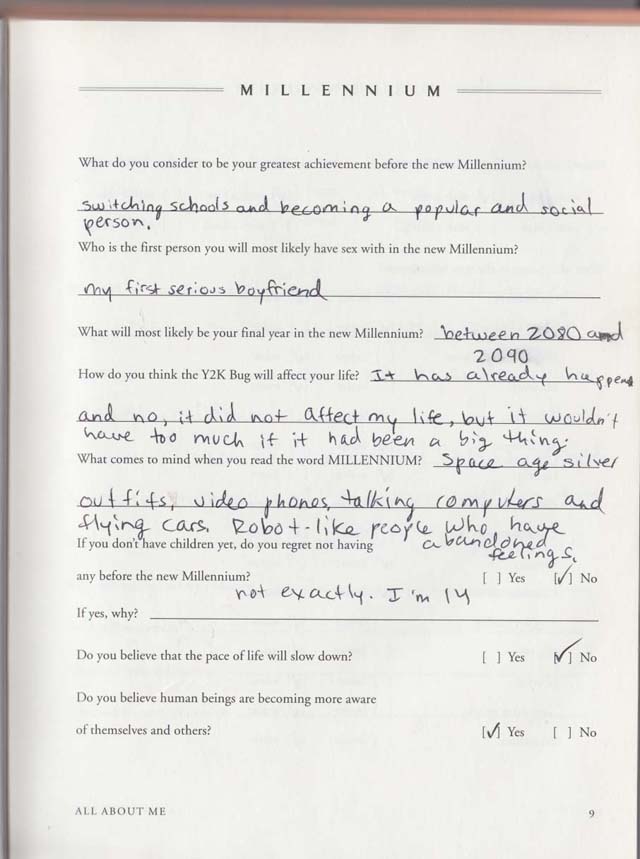 MILLENNIUM
What do you consider to be your greatest achievement before the new Millennium?
switching schools and becoming a popular and social
person.
Who is the first person you will most likely have sex with in the new Millennium?
my first serious boyfriend
What will most likely be your final year in the new Millennium? between 2080 and
2090
How do you think the Y2K Bug will affect your life? It has already happened
and no, it did not affect my life, but it wouldn't
have too much if it had been a big thing.
What comes to mind when you read the word MILLENNIUM? Space age silver
outfits, video phones, talking computers and
flying cars. Robot-like people who have
If you don't have children yet, do you regret not having abandoned
feelings.
any before the new Millennium? [ ] Yes [✓] No
not exactly. I'm 14
If yes, why?
Do you believe that the pace of life will slow down? [ ] Yes [✓] No
Do you believe human beings are becoming more aware
of themselves and others? [✓] Yes [ ] No
ALL ABOUT ME 9